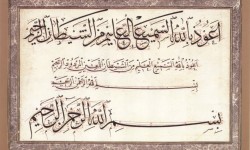 أعوذ بالله السميع العليم من الشيطان الرجيم
أعوذ بالله السميع العليم من الشيطان الرجيم
بسم
بسم الله الرحمن الرحيم